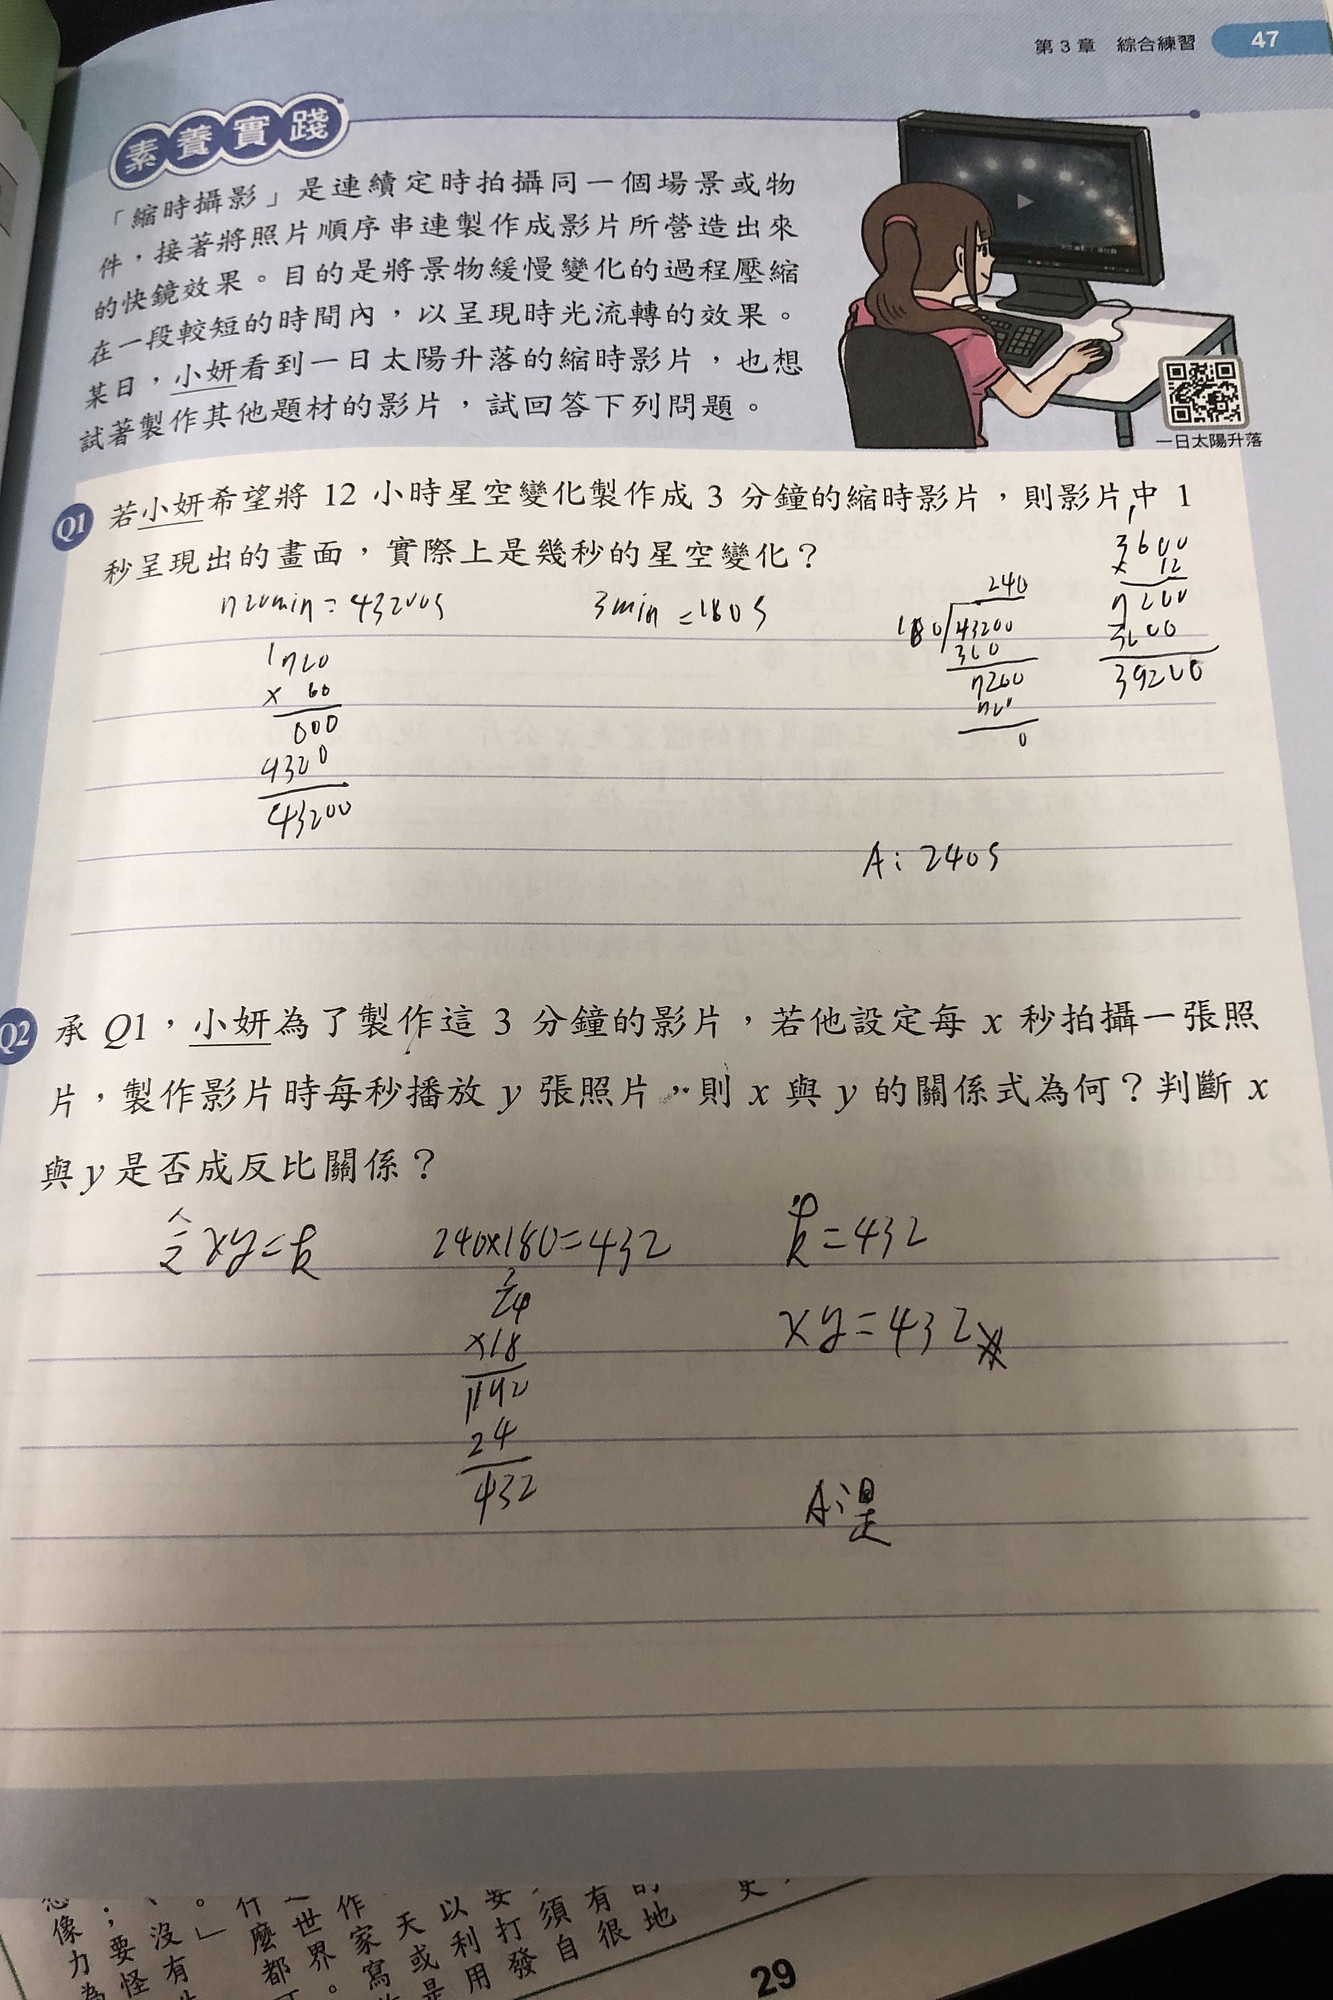 第3章 綜合練習 47
素養實踐
「縮時攝影」是連續定時拍攝同一個場景或物
件，接著將照片順序串連製作成影片所營造出來
的快鏡效果。目的是將景物緩慢變化的過程壓縮
在一段較短的時間內，以呈現時光流轉的效果。
某日，小妍看到一日太陽升落的縮時影片，也想
試著製作其他題材的影片，試回答下列問題。
一日太陽升落
Q1 若小妍希望將 12 小時星空變化製作成 3 分鐘的縮時影片，則影片中 1
秒呈現出的畫面，實際上是幾秒的星空變化？
720min = 43200s
3min = 180s
720
× 60
000
4320
43200
240
180 43200
360
7200
720
0
3600
× 12
7200
3600
39200
A: 240s
Q2 承 Q1，小妍為了製作這 3 分鐘的影片，若他設定每 x 秒拍攝一張照
片，製作影片時每秒播放 y 張照片，則 x 與 y 的關係式為何？判斷 x
與 y 是否成反比關係？
令 xy=k
240×180=432
24
×18
192
24
432
k=432
xy=432
A:是
29